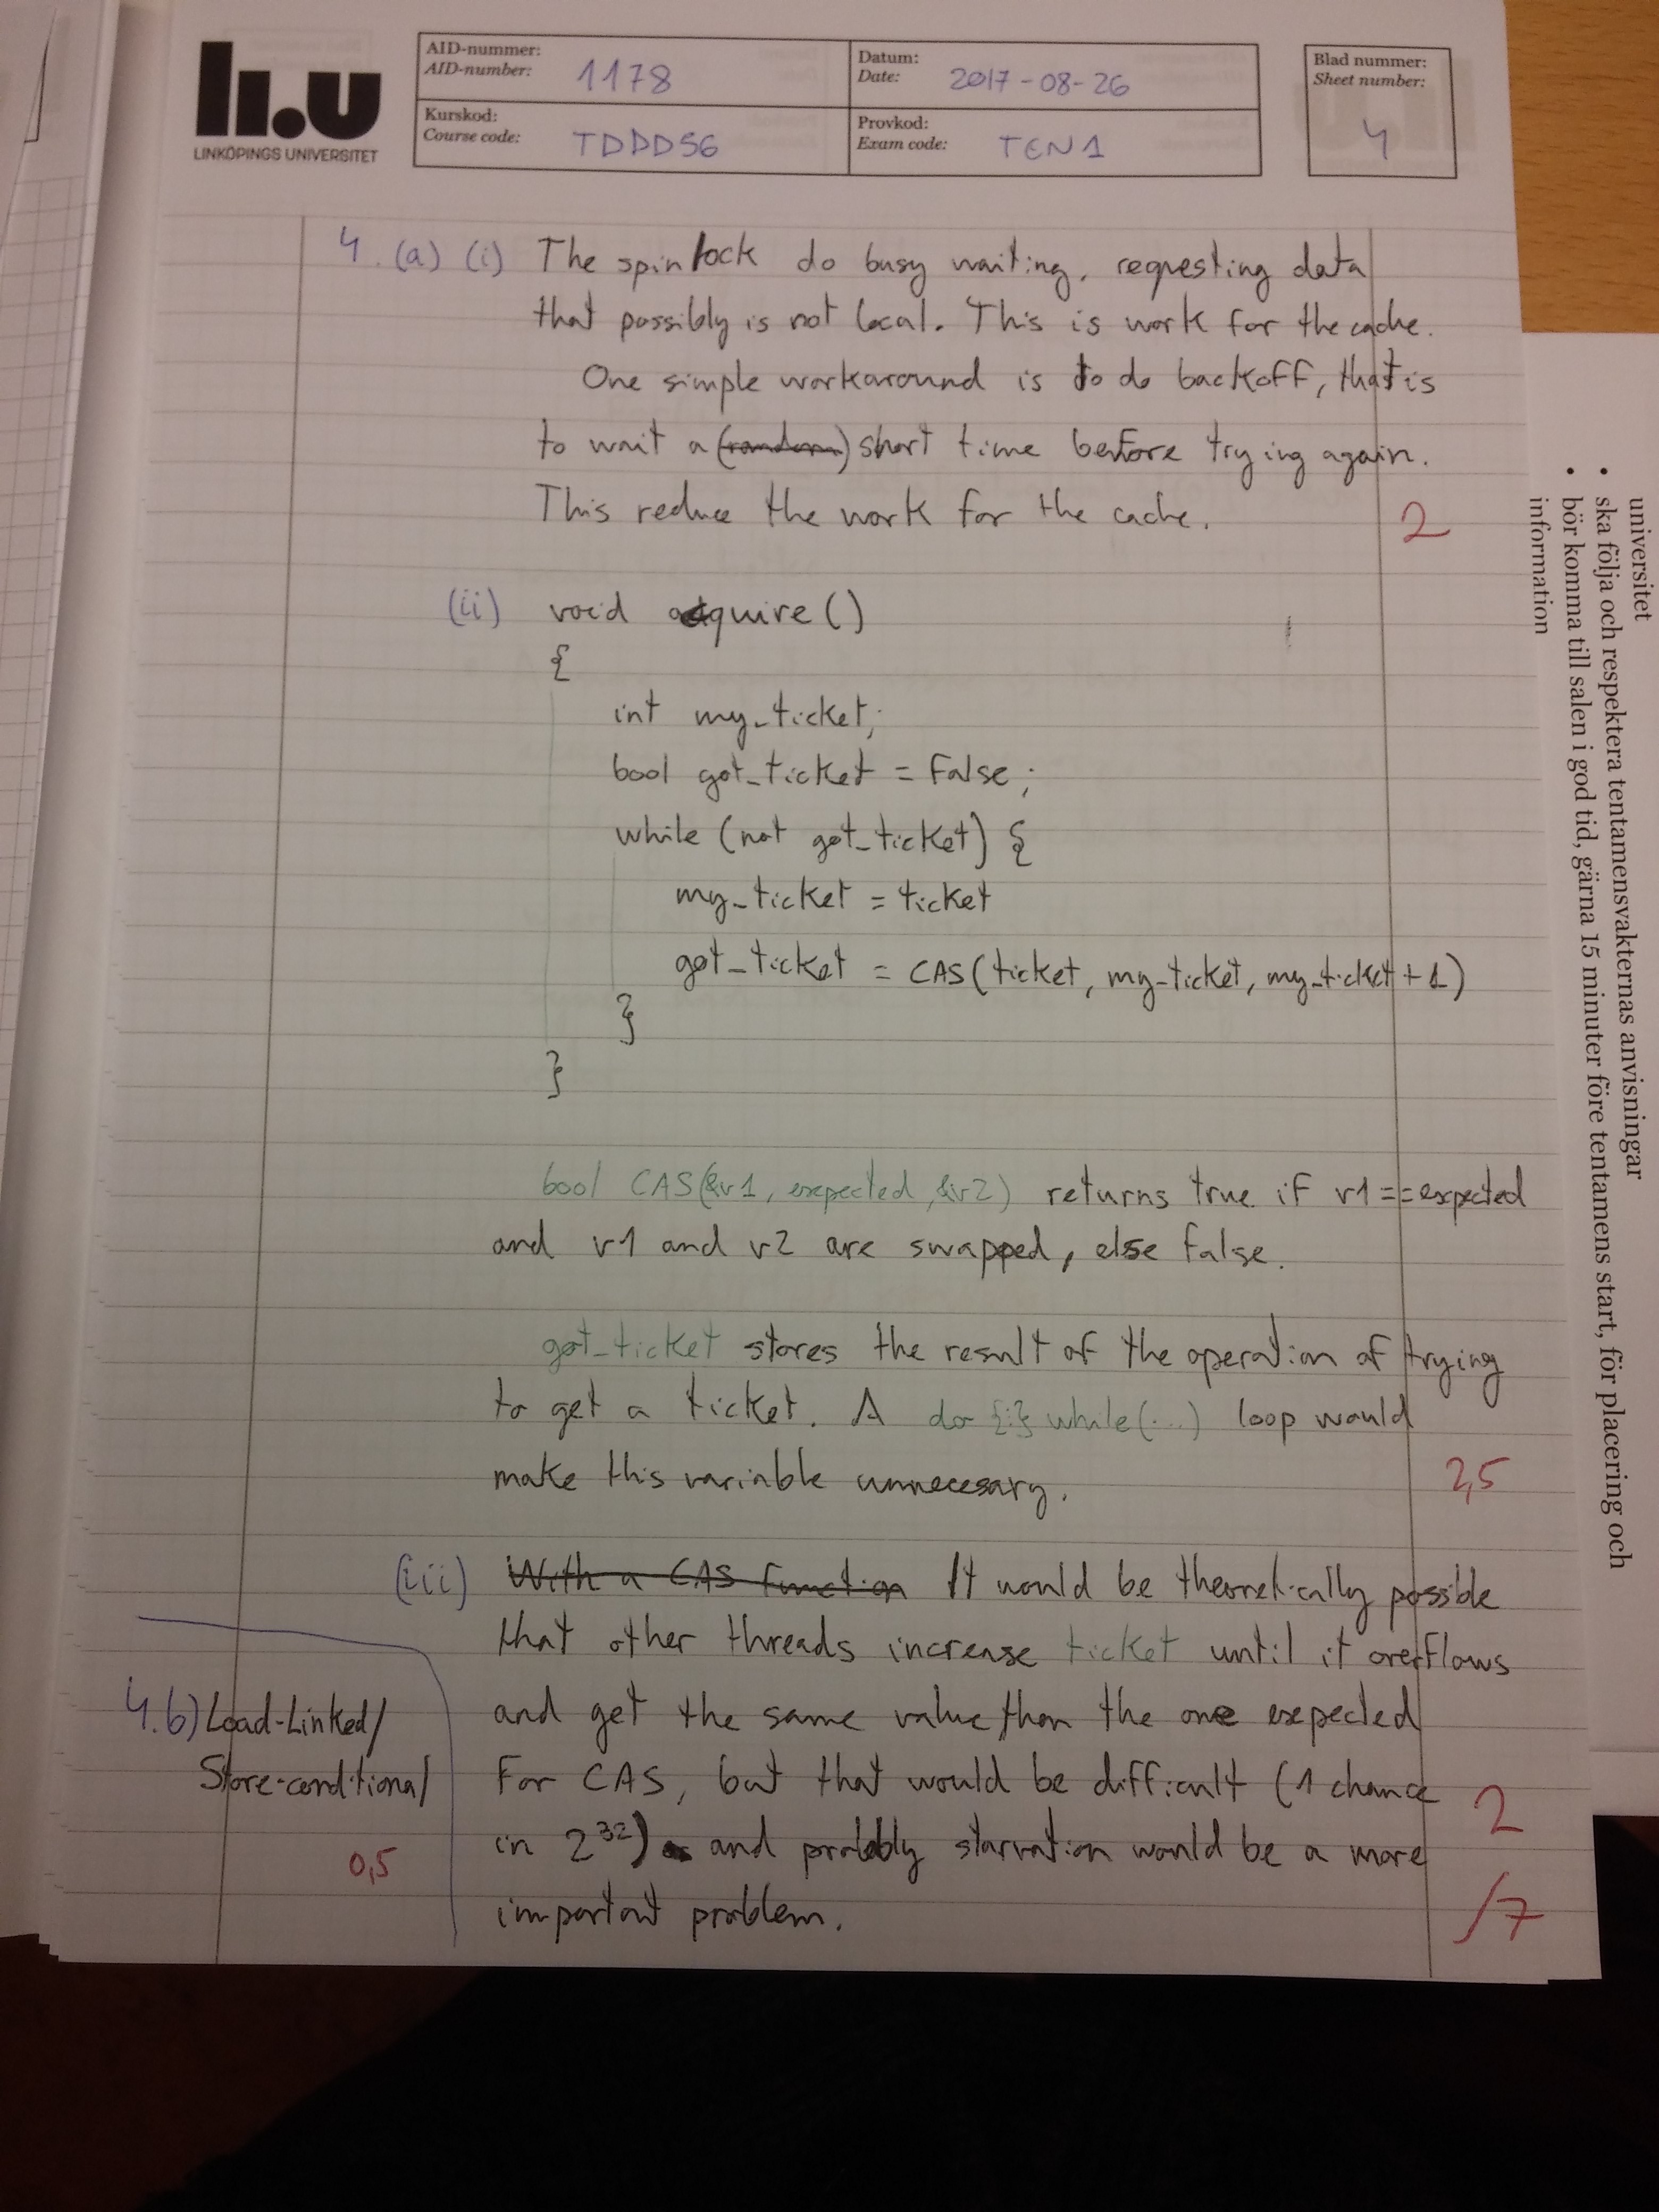 li.u
LINKÖPINGS UNIVERSITET
AID-nummer:
AID-number: 1178
Datum:
Date: 2017-08-26
Blad nummer:
Sheet number:
4
Kurskod:
Course code: TDDD56
Provkod:
Exam code: TEN1
4. (a) (i) The spinlock do busy waiting, requesting data
that possibly is not local. This is work for the cache.
One simple workaround is to do backoff, that is
to wait a (random) short time before trying again.
This reduce the work for the cache.
2
(ii) void acquire()
{
int my_ticket;
bool got_ticket = false;
while (not got_ticket) {
my_ticket = ticket
got_ticket = CAS(ticket, my_ticket, my_ticket + 1)
}
}
bool CAS(&v1, expected, &v2) returns true if v1 == expected
and v1 and v2 are swapped, else false.
got_ticket stores the result of the operation of trying
to get a ticket. A do {:} while(...) loop would
make this variable unnecesary.
2,5
(iii) With a CAS function It would be theoretically possible
that other threads increase ticket until it overflows
and get the same value than the one expected
for CAS, but that would be difficult (1 chance
in 2^32) and probably starvation would be a more
important problem.
2
/7
4.b) Load-Linked/
Store-conditional
0,5
universitet
• ska följa och respektera tentamensvakternas anvisningar
• bör komma till salen i god tid, gärna 15 minuter före tentamens start, för placering och
information